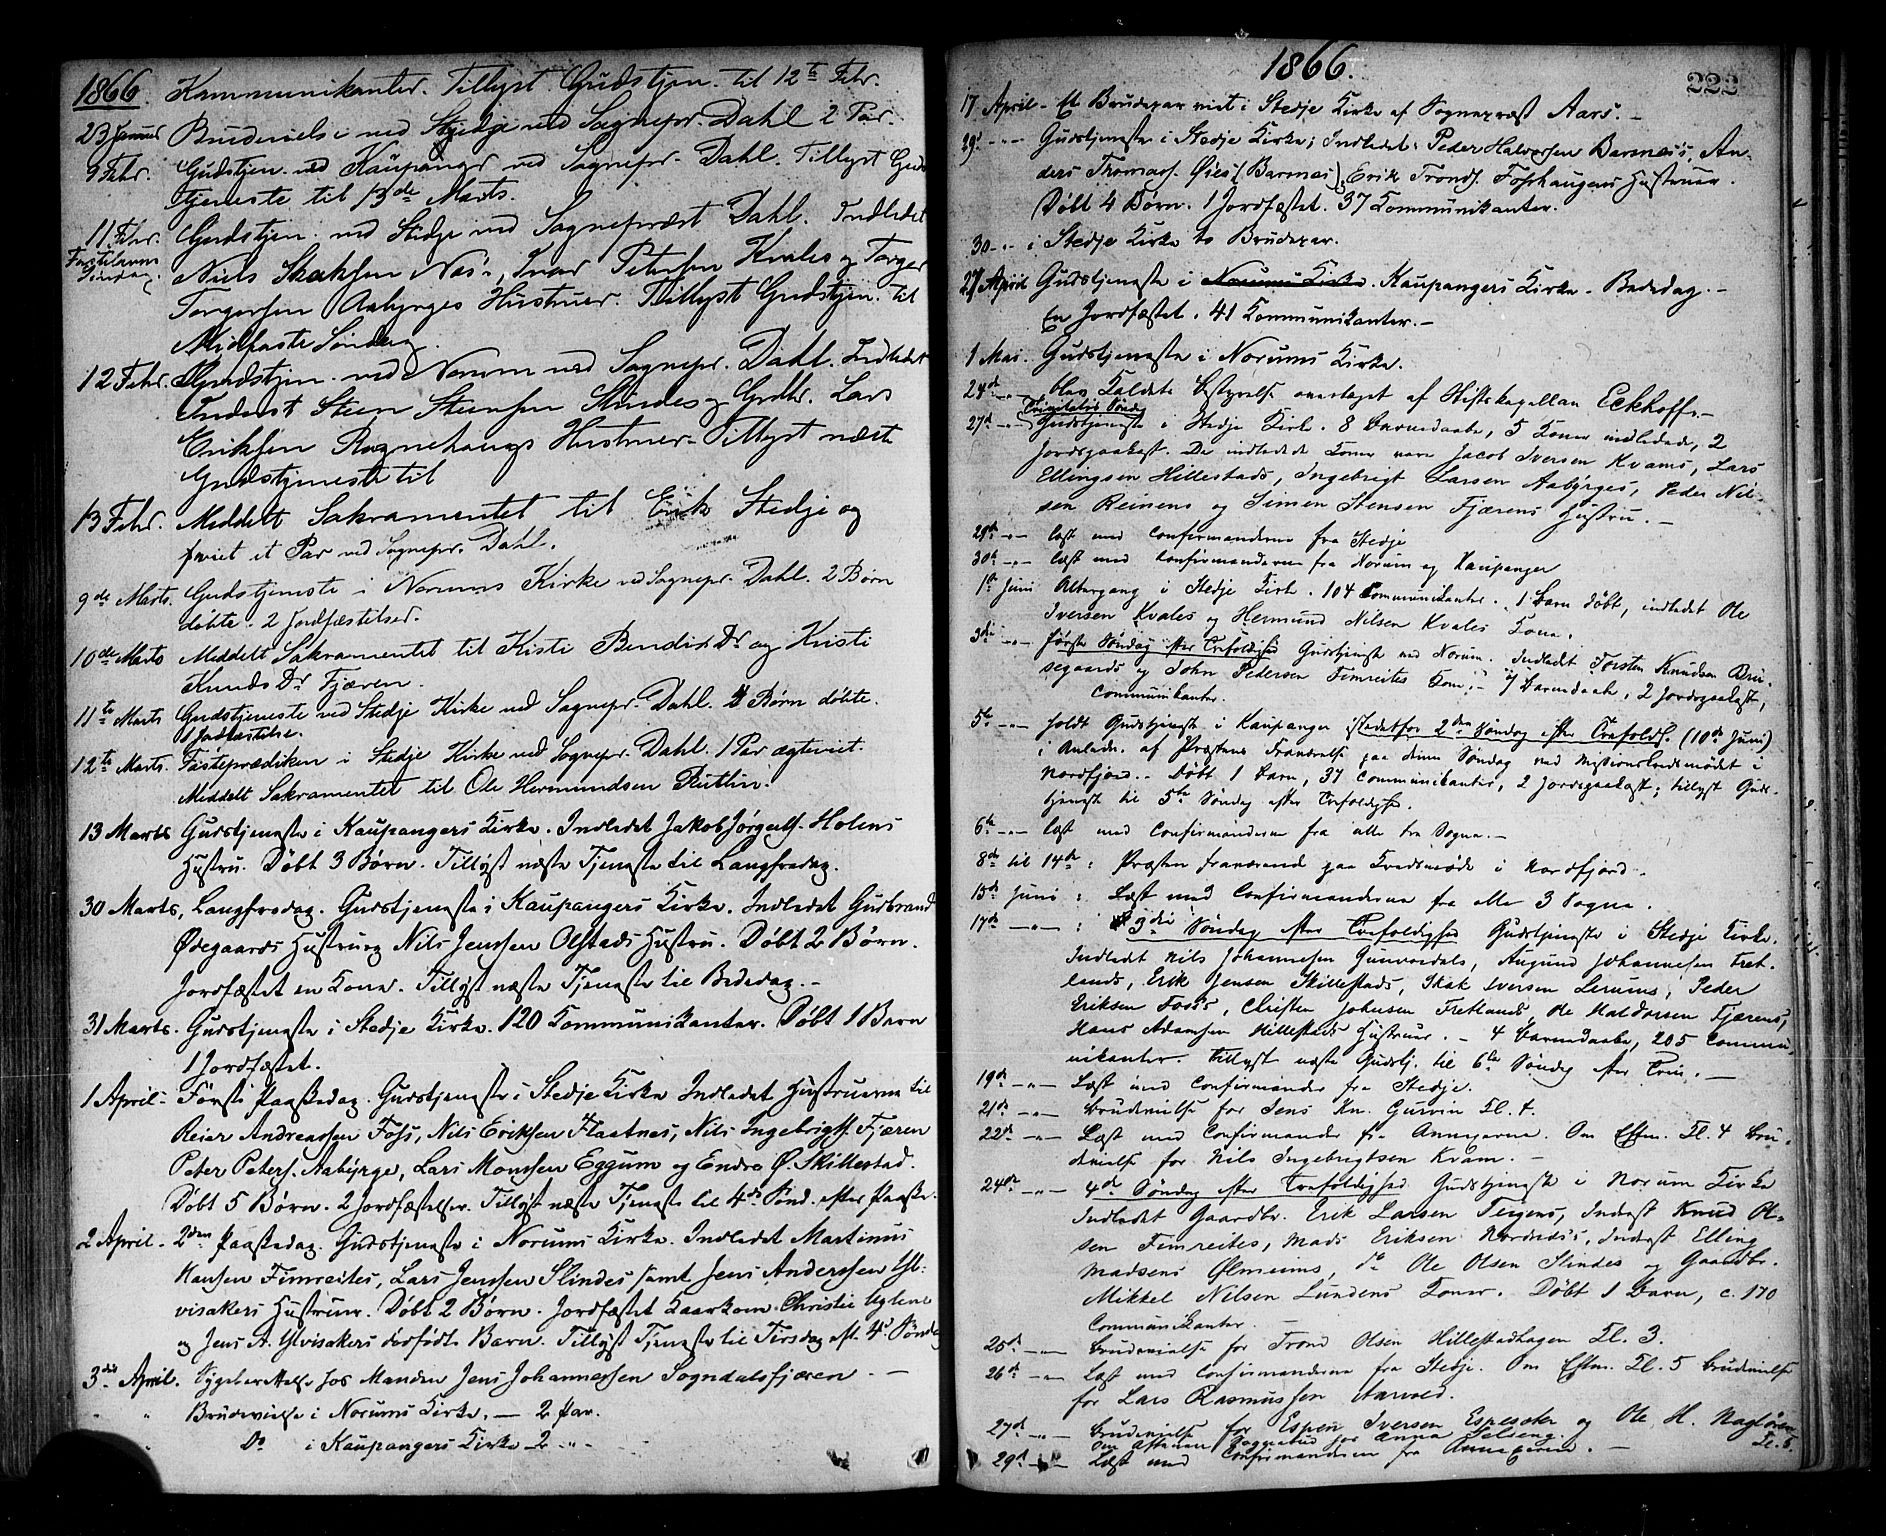 1866. Kommunikanter. Tillyst Gudstjen. til 12te Febr.
23 Januar Brudevielse ved Stedje ved Sognepr. Dahl 2 Par
9 Febr. Gudstjen. ved Kaupanger ved Sognepr. Dahl. Tillyst Guds
tjeneste til 13de Marts.
11 Febr. Gudstjen. ved Stedje ved Sognepræst Dahl. Indledet
Fastelavns
Søndag
Niels Skaksen Næs, Ivar Petersen Kvales og Torger
Torgersen Aabyrges Hustruer. Tillyst Gudstjen. til
Midfaste Søndag.
12 Febr. Gudstjen. ved Norum ved Sognepr. Dahl. Indledet
Inderst Steen Steensen Slindes og Grdbr. Lars
Eriksen Rognehougs Hustruer. Tillyst næste
Gudstjeneste til
13 Febr. Meddelt Sakramentet til Erik Stedje og
viet et Par ved Sognepr. Dahl.
9de Marts. Gudstjeneste i Norums Kirke ved Sognepr. Dahl. 2 Børn
døbte. 2 Jordfæstelser.
10de Marts Meddelt Sakramentet til Kisti Bendix Dr og Kristi
Knuds Dr Fjæren.
11te Marts Gudstjeneste ved Stedje Kirke ved Sognepr. Dahl. 4 Børn døbte.
1 Jordfæstelse.
12te Marts. Fasteprædiken i Stedje Kirke ved Sognepr. Dahl. 1 Par ægteviet.
Meddelt Sakramentet til Ole Hermundsen Rutlin.
13 Marts Gudstjeneste i Kaupangers Kirke. Indledet Jakob Jørgens. Holens
Hustru. Døbt 3 Børn. Tillyst næste Tjeneste til Langfredag.
30 Marts, Langfredag. Gudstjeneste i Kaupangers Kirke. Indledet Gudbrand
Ødegaards Hustru og Nils Jenssen Olstads Hustru. Døbt 2 Børn.
Jordfæstet en Kone. Tillyst næste Tjeneste til Bededag. -
31 Marts. Gudstjeneste i Stedje Kirke. 120 Kommunikanter. Døbt 1 Barn
1 Jordfæstet.
1 April - Første Paaskedag. Gudstjeneste i Stedje Kirke Indledet Hustruerne til
Reier Andreassen Foss, Nils Eriksen Flaatnes, Nils Ingebrigts. Fjæren
Peter Peters. Aabyrge, Lars Monssen Eggum og Endre Ø. Skillestad.
Døbt 5 Børn. 2 Jordfæstelser. Tillyst næste Tjeneste til 4de Sønd. efter Paaske.
2 April - 2den Paaskedag. Gudstjeneste i Norums Kirke. Indledet Martinus
Hansen Fimreites, Lars Jenssen Slindes samt Jens Anderssen Yl-
visakers Hustruer. Døbt 2 Børn. Jordfæstet Kaarkone Christie
og Jens A. Ylvisakers dødfødte Barn. Tillyst Tjeneste til Tirsdag eft. 4de Søndag
3die April. Sygeberettelse hos Manden Jens Johannessen Sogndalsfjæren -
" " Brudevielse i Norums Kirke. - 2 Par.
" Do i Kaupangers Kirke 2 - " -
1866.
222
17 April - Et Brudepar viet i Stedje Kirke af Sognepræst Aars. -
29. - " - Gudstjeneste i Stedje Kirke; Indledet: Peder Halvorsen Barsnes, An-
ders Thomas. Øies (Barsnes), Erik Tronds. Fosshaugens Hustruer.
Døbt 4 Børn. 1 Jordfæstet. 37 Kommunikanter.
30 - " - i Stedje Kirke to Brudepar.
27 April Gudstjeneste i Norums Kirke. Kaupangers Kirke - Bededag. -
En Jordfæstet. 41 Kommunikanter. -
1 Mai. Gudstjeneste i Norums Kirke.
24de blev Kaldets Bestyrelse overtaget af Stiftskapellan Eckhoff. -
Trinitatis Søndag
27de - " - Gudstjeneste i Stedje Kirke. 8 Barnedaabe, 5 Koner indledede, 2
Jordspaakast. De indledede Koner vare Jacob Iversen Kvams, Lars
Ellingsen Hillestads, Ingebrigt Larsen Aabyrges, Peder Nil-
sen Reinens og Simon Stensen Fjærens Hustru. -
29de - " - læst med Confirmanderne fra Stedje
30te - " - læst med Confirmanderne fra Norum og Kaupanger
1ste Juni Altergang i Stedje Kirke. 104 Communikanter. 1 Barn døbt, indledet Ole
Iversen Kvales og Hermund Nilsen Kvales Kone.
3die - " - første Søndag efter Trefoldighed Gudstjeneste ved Norum. Indledet Torsten Knudsen Bru-
segaards og John Pedersen Fimreites Kone; - 7 Barnedaabe, 2 Jordspaakast,
Communikanter.
5te - " - holdt Gudstjeneste i Kaupanger istedetfor 2den Søndag efter Trefoldh. (10de Juni)
i Anledn. af Præstens Fraværelse paa denne Søndag ved Missionskredsmødet i
Nordfjord. - Døbt 1 Barn, 37 Communikanter, 2 Jordspaakast; tillyst Guds-
tjeneste til 5te Søndag efter Trefoldighed.
6te - " - læst med Confirmanderne fra alle tre Sogne. -
8de til 14de: Præsten fraværende paa Kredsmøde i Nordfjord.
15de Juni: Læst med Confirmanderne fra alle 3 Sogne.
17de - " - : 3die Søndag efter Trefoldighed Gudstjeneste i Stedje Kirke.
Indledet Nils Johannesen Gunvordals, Augund Johannesen Fret-
lands, Erik Jensen Skillestads, Skak Iversen Lerums, Peder
Eriksen Foss's, Christen Johnsen Fretlands, Ole Haldorsen Fjærens,
Hans Adamsen Hillestads Hustruer. - 4 Barnedaabe, 205 Commu-
nikanter. Tillyst næste Gudstj. til 6te Søndag efter Trin. -
19de - " - Læst med Confirmander fra Stedje.
21de - " - Brudevielse for Jens Kn. Gurvin Kl. 4.
22de - " - Læst med Confirmander fra Annexerne. Om Eftm. Kl. 4 Bru-
devielse for Nils Ingebrigtsen Kvam. -
24de - " - 4de Søndag efter Trefoldighed Gudstjeneste i Norum Kirke
Indledet Gaardbr. Erik Larsen Teigens, Inderst Knud Ol-
sen Fimreites, Mads Eriksen Nordnæss, Inderst Elling
Madsens Ølmeims, do Ole Olsen Slindes og Gaardbr.
Mikkel Nilsen Lundens Koner. Døbt 1 Barn, c. 170
Communikanter. -
25de - " - Brudevielse for Trond Olsen Hillestadhagen Kl. 3.
26de - " - Læst med Confirmanderne fra Stedje. Om Eftm. Kl. 5 Brudevielse
for Lars Rasmussen Aarvold.
27de - " - Brudevielse for Espen Iversen Espesæter og Ole H. Nagløren
Kl. 5.
Om Aftenen Sognebud for Anna Selseng.
29de - " - Læst med Confirmanderne fra Annexerne. -